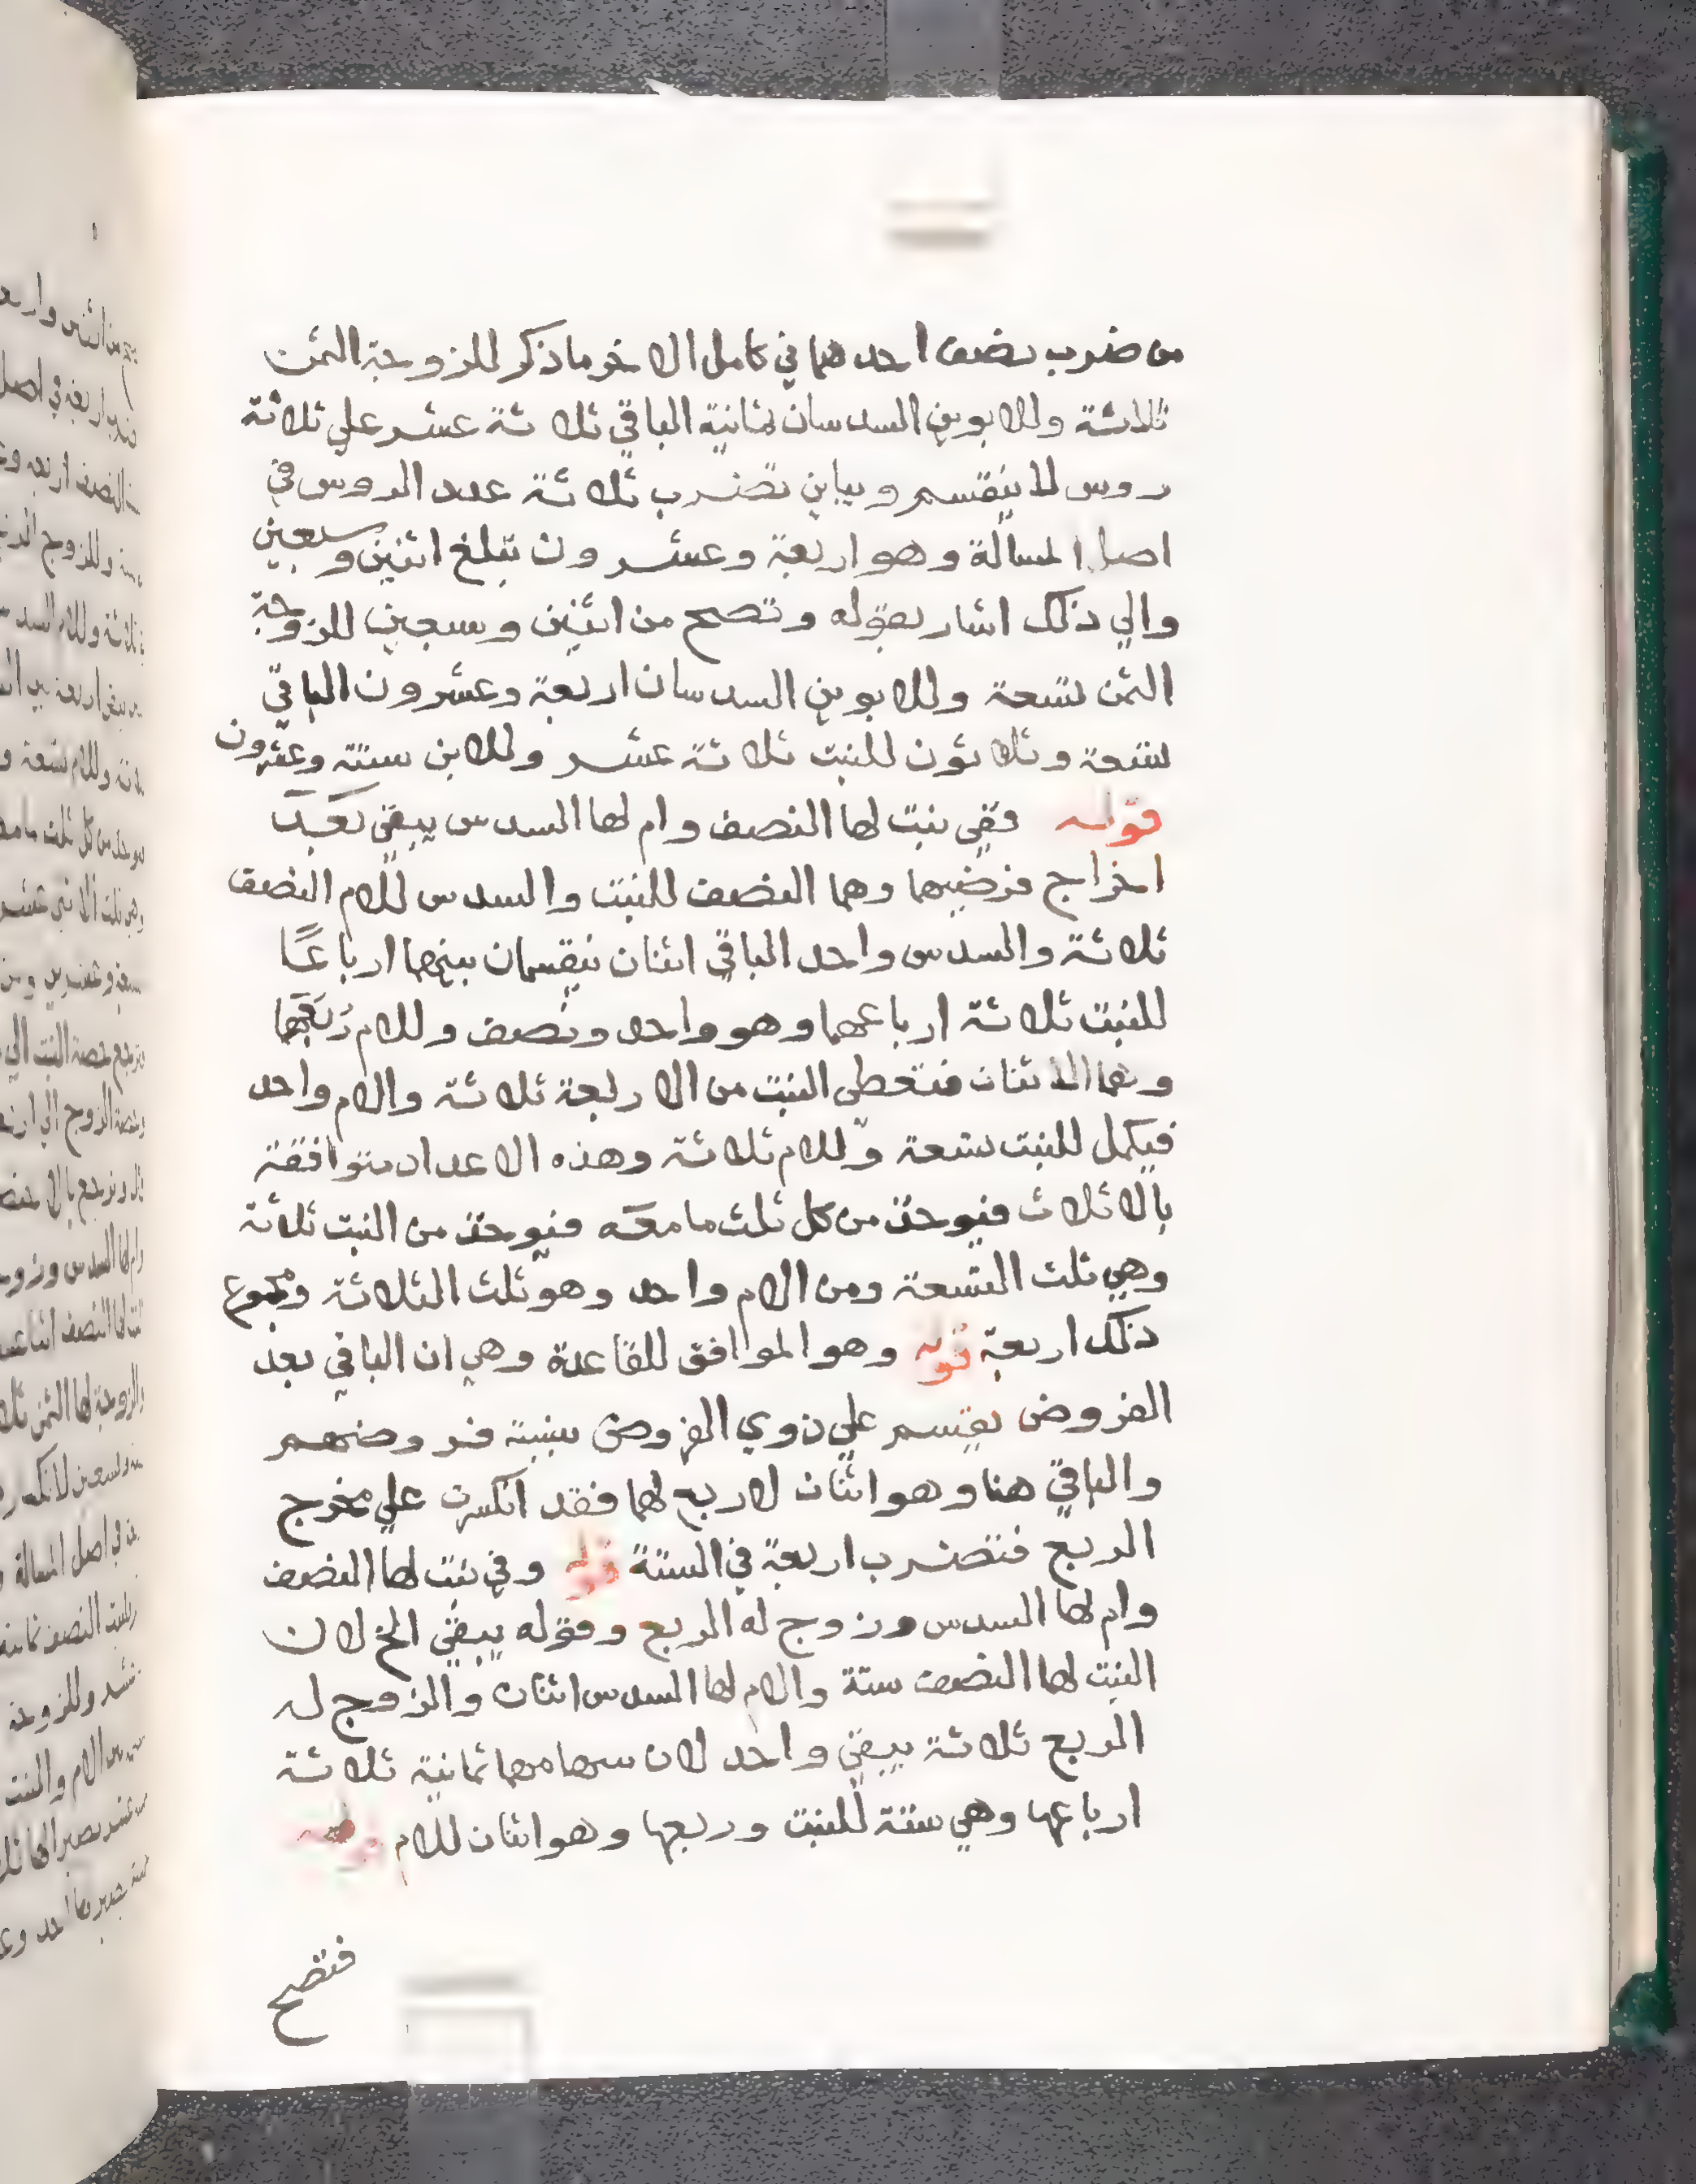 من ضرب نصف احدهما في كامل الاخر ما ذكر للزوجة الثمن
ثلاثة وللابوين السدسان ثمانية الباقي ثلاثة عشر علي ثلاثة
روس لا ينقسم ويباين تضرب ثلاثة عدد الروس في
اصل المسالة وهو اربعة وعشرون تبلغ اثنين وسبعين
والي ذلك اشار بقوله وتصح من اثنين وسبعين للزوجة
الثمن تسعة وللابوين السدسان اربعة وعشرون الباقي
تسعة وثلاثون للبنت ثلاثة عشر وللابن ستة وعشرون
قوله ففي بنت لها النصف وام لها السدس يبقي بعد
اخراج فرضيهما وهما النصف للبنت والسدس للام النصف
ثلاثة والسدس واحد الباقي اثنان ينقسمان بينهما ارباعًا
للبنت ثلاثة ارباعهما وهو واحد ونصف وللام رُبعهما
وهما الاثنان فتعطى البنت من الاربعة ثلاثة والام واحد
فيكمل للبنت تسعة وللام ثلاثة وهذه الاعداد متوافقة
بالاثلاث فيوخذ من كل ثلث ما معه فيوخذ من البنت ثلاثة
وهي ثلث التسعة ومن الام واحد وهو ثلث الثلاثة ومجموع
ذلك اربعة قوله وهو الموافق للقاعدة وهي ان الباقي بعد
الفروض يقسم علي ذوي الفروض بنسبة فروضهم
والباقي هنا وهو اثنان لا ربع لهما فقد انكسرت علي مخرج
الربع فتضرب اربعة في الستة قوله وفي بنت لها النصف
وام لها السدس وزوج له الربع وقوله يبقي الخ لان
البنت لها النصف ستة والام لها السدس اثنان والزوج له
الربع ثلاثة يبقي واحد لان سهامهما ثمانية ثلاثة
ارباعها وهي ستة للبنت وربعها وهو اثنان للام قوله
فتصح